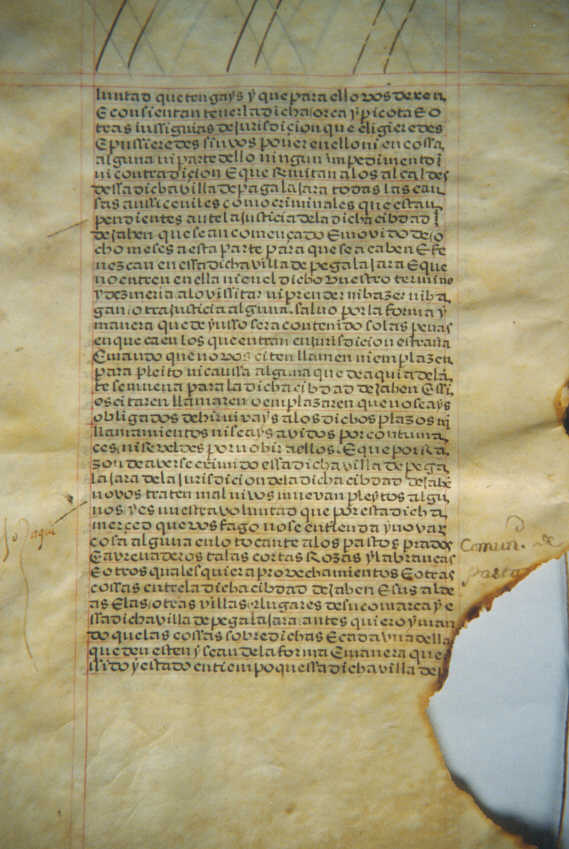 luntad que tengays y que para ello vos dexen
E consientan tener la dicha forca y picota E o
tras inssignias de jurisdiçion que eligieredes
E pussieredes sin vos poner en ello ni en cossa
alguna ni parte dello ningun impedimento
ni contradiçion E que Remitan a los alcaldes
dessa dicha villa de pagalajara todas las cau
sas assi ceuiles como criminales que estan
pendientes ante la justicia de la dicha cibdad
de jahen que se an començado E movido de o
cho meses a esta parte para que se acaben E fe
nezcan en essa dicha villa de pegalajara E que
no entren en ella ni en el dicho vuestro termino
y dezmeria a lo vissitar ni prender ni hazer ni ha
gan otra justicia alguna. salvo por la forma y
manera que de yusso sera contenido so las penas
en que caen los que entran en jurisdicion estraña
E mando que no vos citen llamen ni emplazen
para pleito ni caussa alguna que de aqui adelan
te se mueva para la dicha cibdad de jahen E si
os citaren llamaren o emplazaren que no seays
obligados de hir ni vays a los dichos plazos ni
llamamientos ni seays avidos por contuma
ces, ni Reveldes por no hir a ellos. E que por Ra
zon de averse eximido essa dicha villa de pega
lajara de la jurisdicion de la dicha cibdad de jahen
no vos traten mal ni vos muevan pleytos algu
nos y es nuestra voluntad que por esta dicha
merced que vos fago no se entienda ynovar
cosa alguna en lo tocante a los pastos prados
E abrevaderos talas cortas Rozas y labranças
E otros qualesquiera provechamientos E otras
cossas entre la dicha cibdad de jahen E sus alde
as E las otras villas E lugares de su comarca y e
ssa dicha villa de pegalajara. antes quiero y man
do que las cossas sobredichas E cada vna della
que den esten y sean de la forma E manera que
sido y estado en tiempo que essa dicha villa de
Comun. de
pastos